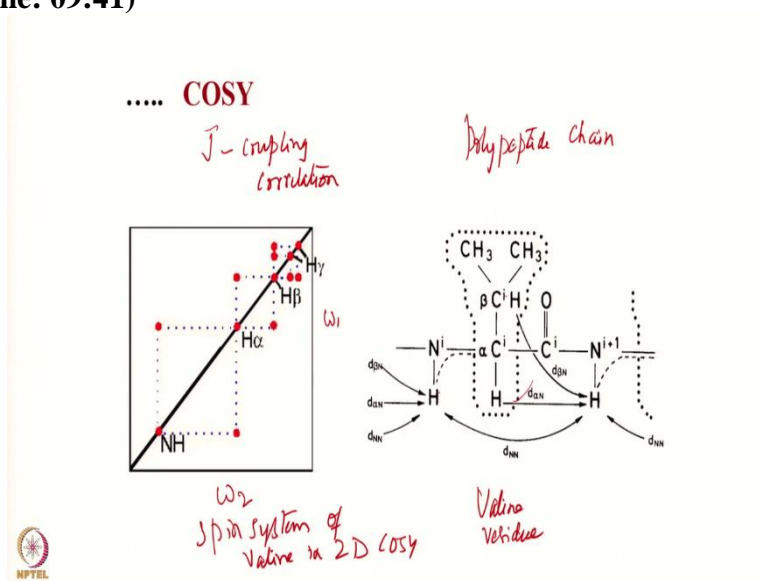 ne: 09:41)
..... COSY
J - coupling
correlation
Polypeptide chain
Hγ
Hβ
Hα
NH
ω1
ω2
spin system of
Valine in 2D COSY
CH3 CH3
βCⁱH O
Nⁱ αCⁱ Cⁱ Nⁱ⁺¹
H H H
dβN
dαN
dNN
dαN
dβN
dNN
dNN
Valine
residue
NPTEL